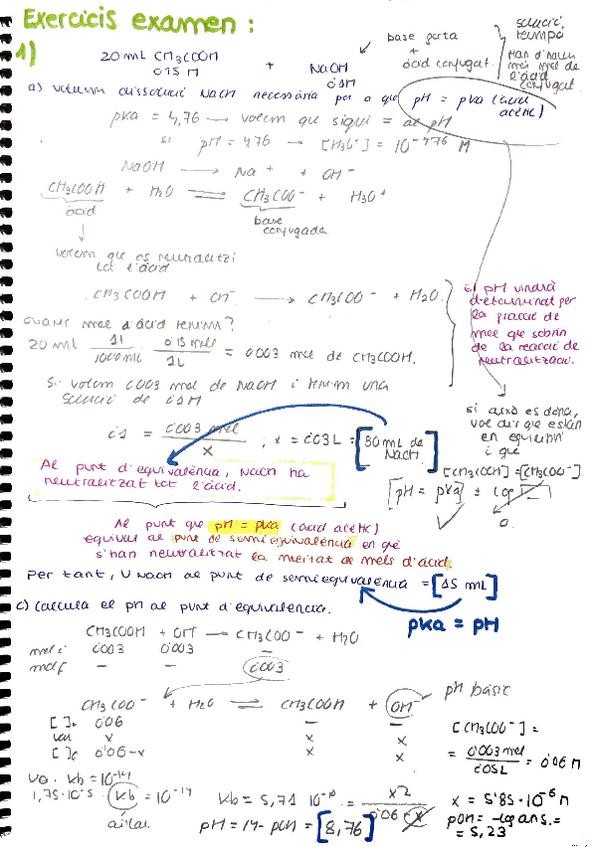 Exercicis examen:
1) 20 mL CH3COOH + NaOH
0'15 M 0'1M
base forta + àcid conjugat.
solució tampó
a) volum dissolució NaOH necessària per a que pH = pKa (àcid acètic)
pKa = 4,76 → volem que sigui = al pH
si pH = 4'76 → [H3O+] = 10^-4'76 M
NaOH → Na+ + OH-
CH3COOH + H2O ⇌ CH3COO- + H3O+
àcid base conjugada
↓
volem que es neutralitzi tot l'àcid
CH3COOH + OH- → CH3COO- + H2O
El pH vindrà determinat per la fracció de mol que sobrin de la reacció de neutralització.
Quants mol d'àcid tenim?
20 ml · 1L/1000ml · 0'15 mol/1L = 0'003 mol de CH3COOH.
Si volem 0'003 mol de NaOH i tenim una solució de 0'1M
0'1 = 0'003 mol / x ; x = 0'03L = [30 mL de NaOH]
si això es dona, vol dir que estan en equilibri i que
[CH3COOH] = [CH3COO-]
[pH = pKa] ± log
0.
Al punt d'equivalència, NaOH ha neutralitzat tot l'àcid.
Al punt que pH = pKa (àcid acètic)
equival al punt de semiequivalència en què
s'han neutralitzat la meitat de mols d'àcid.
Per tant, V NaOH al punt de semiequivalència = [15 mL]
pKa = pH
c) Calcula el pH al punt d'equivalència.
CH3COOH + OH- → CH3COO- + H2O
mol i 0'003 0'003 –
mol f – – 0'003
CH3COO- + H2O ⇌ CH3COOH + OH- pH bàsic
[ ]o 0'06 – –
var x x x
[ ]f 0'06-x x x
[CH3COO-] =
= 0'003 mol / 0'05L = 0'06 M
Ka · Kb = 10^-14
1,75·10^-5 · Kb = 10^-14
aïllar
Kb = 5,71 · 10^-10 = x² / 0'06-x
x = 5'85·10^-6 M
pOH = -log ans. = = 5,23
pH = 14 - pOH = [8,76]